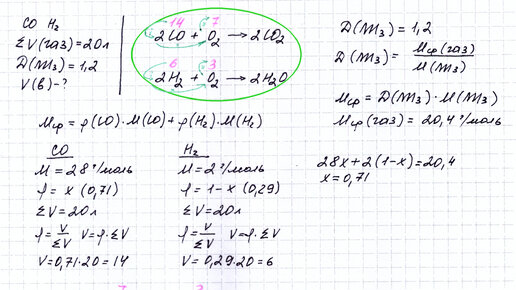 CO H₂
ΣV(газ)=20л
D(ПГ₃)=1,2
V(в)-?
14 7
2CO + O₂ → 2CO₂
6 3
2H₂ + O₂ → 2H₂O
D(ПГ₃)=1,2
D(ПГ₃)= Mср(газ)/M(ПГ₃)
Mср=D(ПГ₃)·M(ПГ₃)
Mср(газ)=20,4 г/моль
Mср=φ(CO)·M(CO)+φ(H₂)·M(H₂)
CO
M=28 г/моль
φ=x (0,71)
ΣV=20л
φ=V/ΣV V=φ·ΣV
V=0,71·20=14
H₂
M=2 г/моль
φ=1-x (0,29)
ΣV=20л
φ=V/ΣV V=φ·ΣV
V=0,29·20=6
28x+2(1-x)=20,4
x=0,71